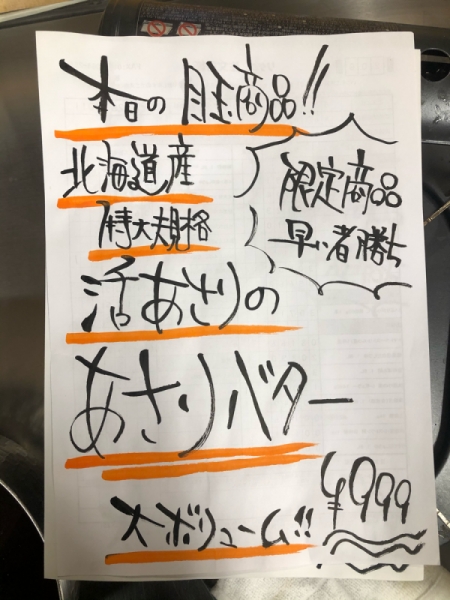 本日の目玉商品!!
北海道産
特大規格
限定商品
早い者勝ち
活あさりの
あさりバター
大ボリューム!!
¥999